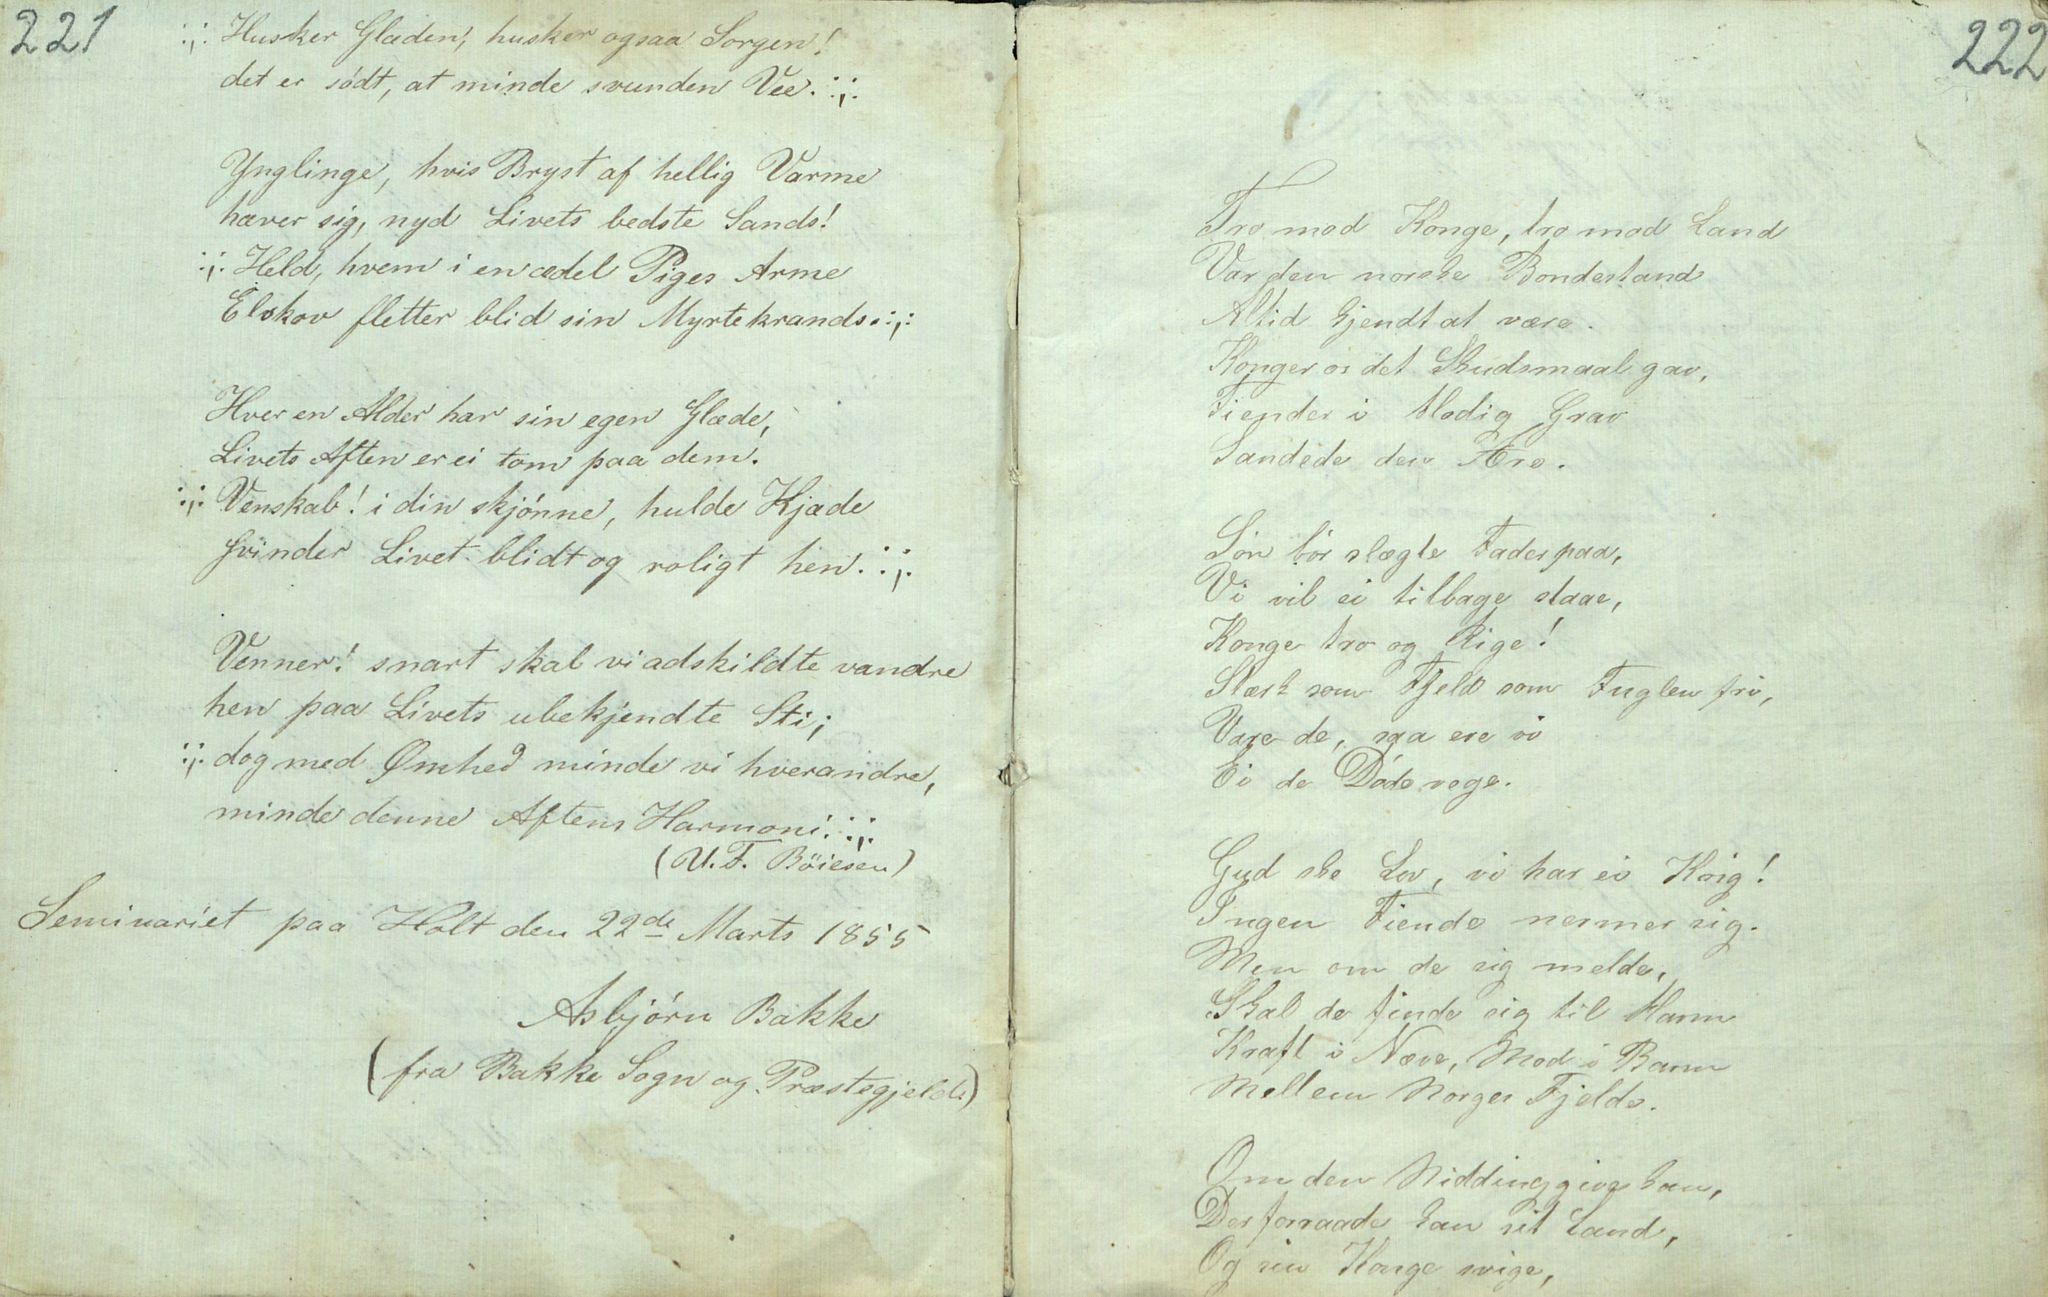 221
:,: Husker Glæden, husker ogsaa Sorgen!
det er södt, at minde svunden Vee. :,:
Ynglinge, hvis Bryst af hellig Varme
hæver sig, nyd Livets bedste Sands!
:,: Held, hvem i en ædel Piges Arme
Elskov fletter blid sin Myrtekrands. :,:
Hver en Alder har sin egen Glæde,
Livets Aften er ei tom paa dem.
:,: Venskab! i din skjönne, hulde Kjæde
svinder Livet blidt og roligt hen. :,:
Venner! snart skal vi adskildte vandre
hen paa Livets ubekjendte Sti;
:,: dog med Ømhed minde vi hverandre,
minde denne Aftens Harmoni. :,:
(U. F. Böiesen)
Seminariet paa Holt den 22de Marts 1855
Asbjörn Bakke
(fra Bakke Sogn og Præstegjeld)
222
Tro mod Konge, tro mod Land
Var den norske Bondestand
Altid kjendt at være.
Konger os det Skudsmaal gav,
Fiender i blodig Grav
Sandede den Ære.
Sön bör slægte Fader paa,
Vi vil ei tilbage staae,
Konge tro og Rige!
Stærk som Fjeld som Fuglen fri,
Vare de, saa ere vi
Ei de Döde vege.
Gud ske Lov, vi har ei Krig!
Ingen Fiende nermer sig.
Men om de sig melde,
Skal de finde sig til Mann
Kraft i Næve, Mod i Bann
Mellem Norges Fjelde.
Om den Nidding gives kan,
Der forraade kan sit Land,
Og sin Konge svige,